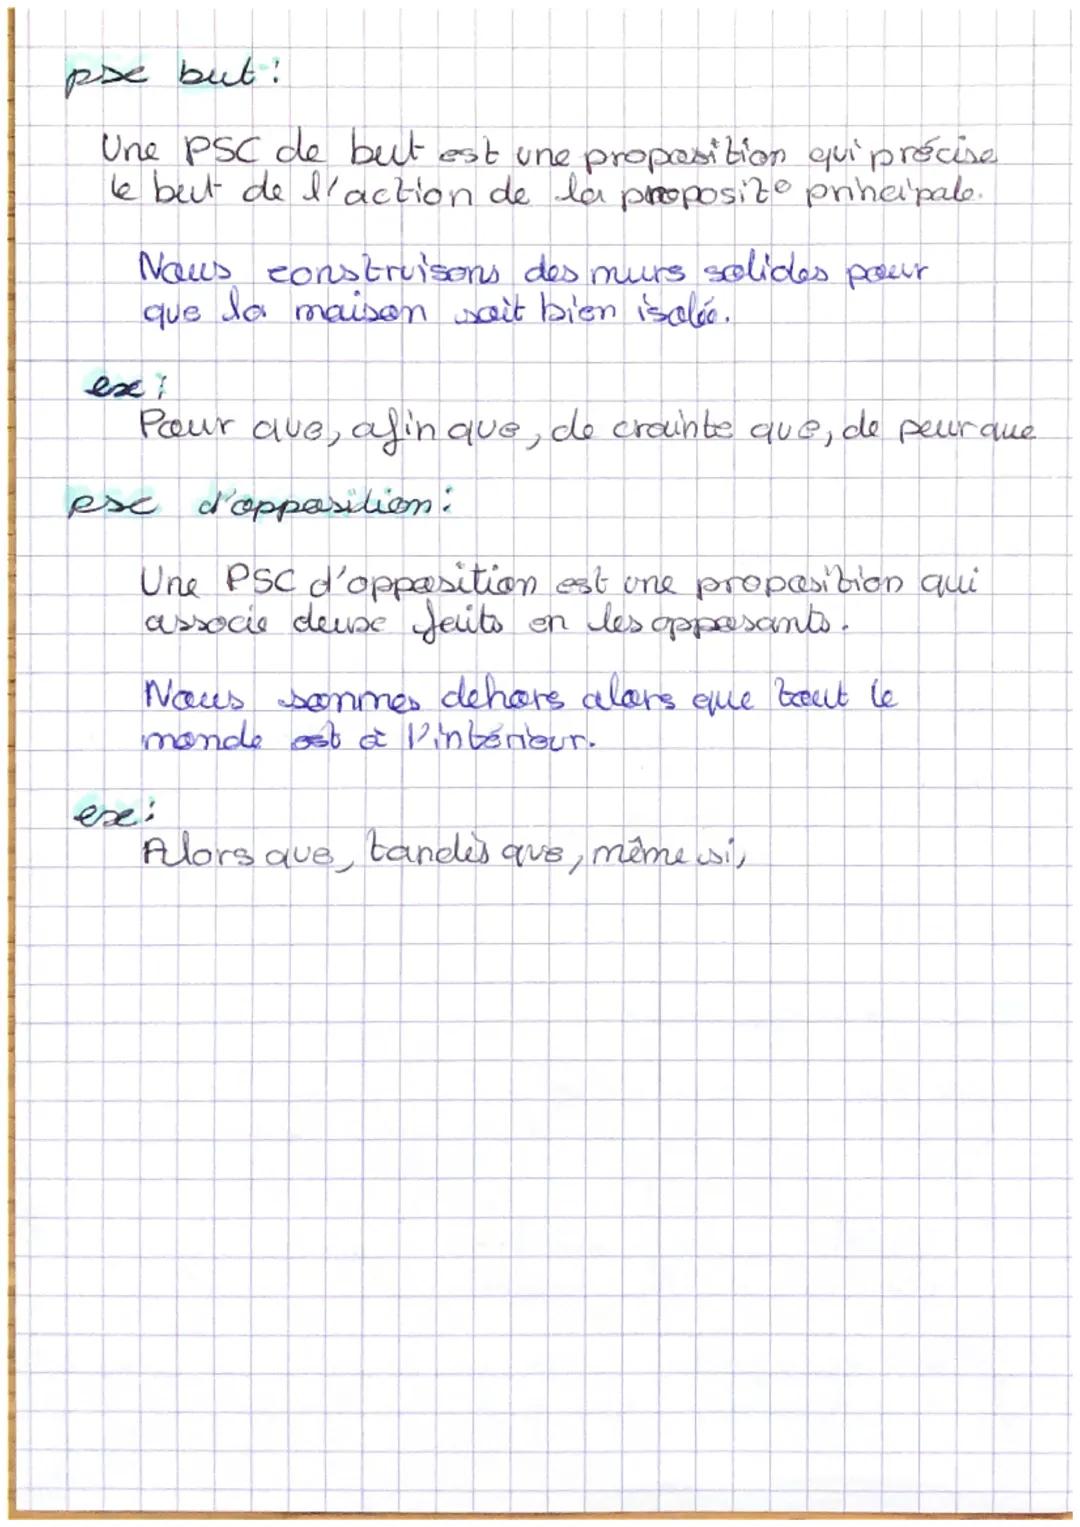 psc but :
Une PSC de but est une proposition qui précise
le but de l'action de la proposite principale.
Nous construisons des murs solides pour
que la maison soit bien isolée.
ex :
Pour que, afin que, de crainte que, de peur que
psc d'opposition :
Une PSC d'opposition est une proposition qui
associe deux faits en les opposants.
Nous sommes dehors alors que tout le
monde est à l'intérieur.
ex :
Alors que, tandis que, même si,